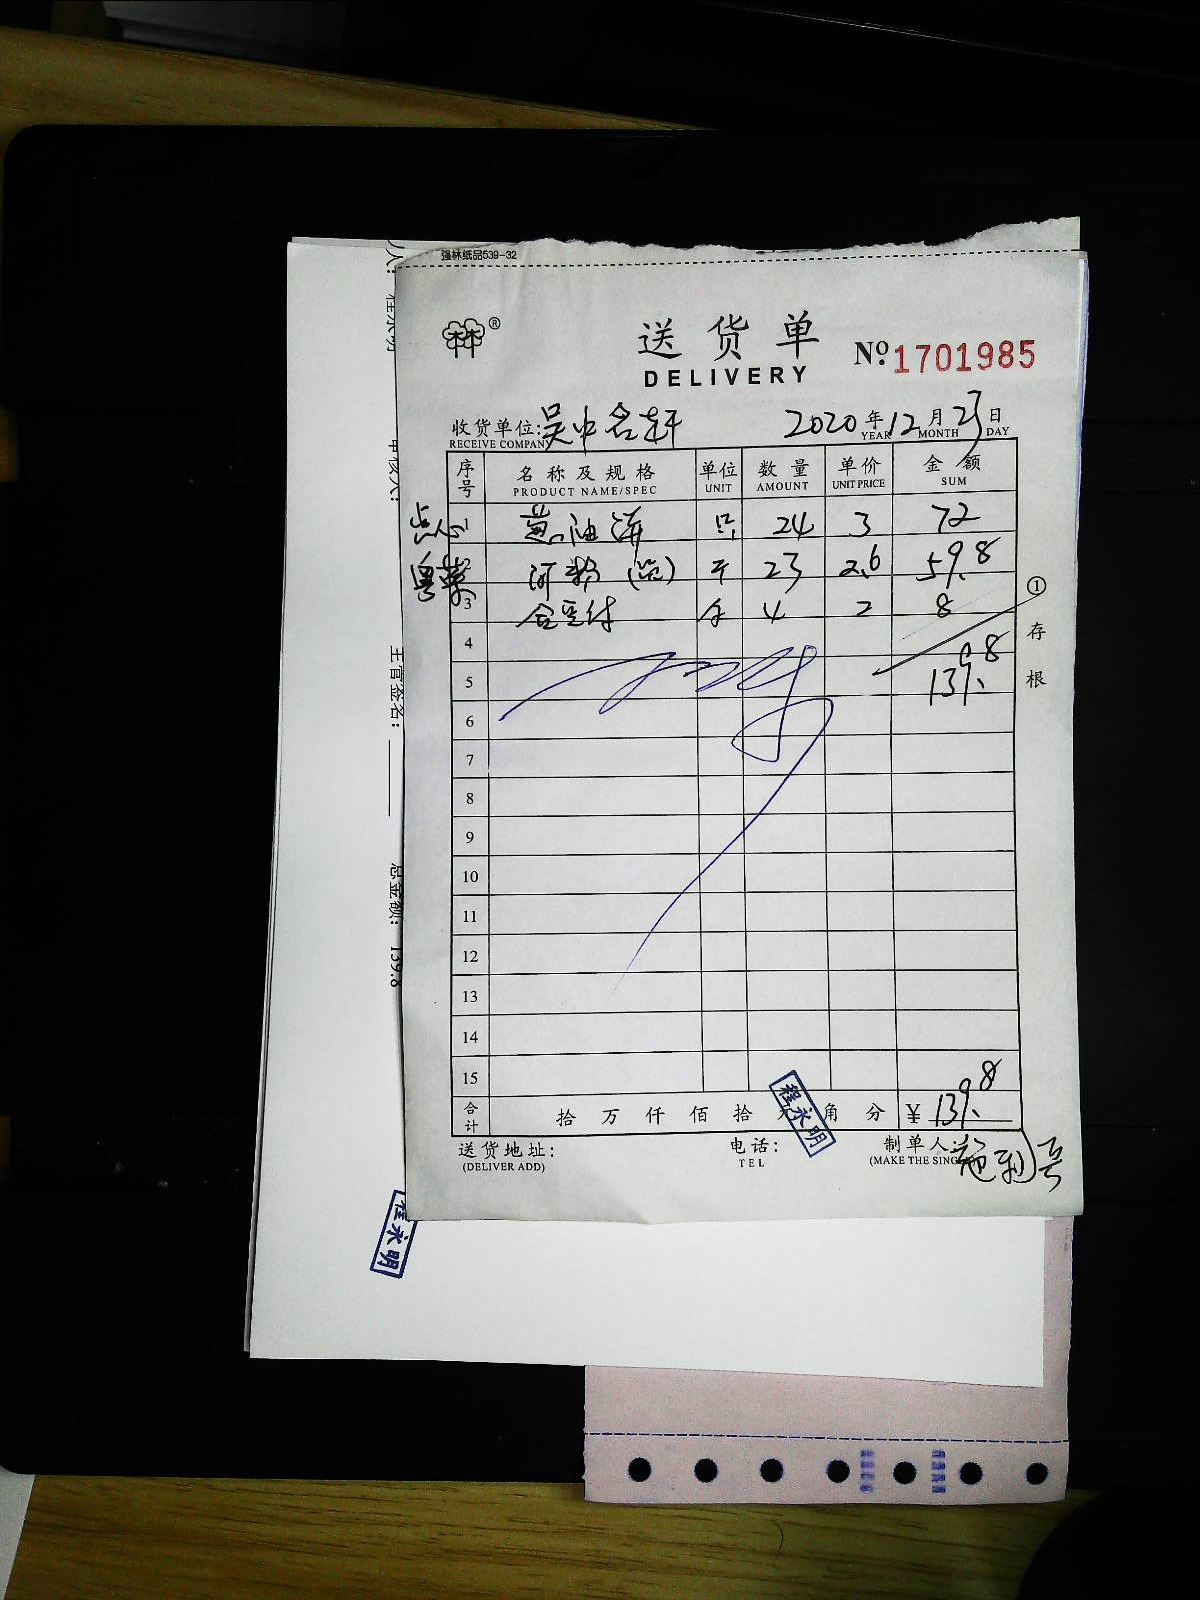 强林纸品539-32
林林®
送货单
DELIVERY
№1701985
收货单位:吴中名轩 2020年12月23日
RECEIVE COMPANY YEAR MONTH DAY
序号 名称及规格 单位 数量 单价 金额
PRODUCT NAME/SPEC UNIT AMOUNT UNIT PRICE SUM
点心 1 葱油饼 只 24 3 72
粤菜 2 河粉 斤 23 2.6 59.8
3 4 2 8
4
5 139.8
6
7
8
9
10
11
12
13
14
15
合计 拾万仟佰拾元角分 ¥ 139.8
送货地址: 电话: 制单人:
(DELIVER ADD) TEL (MAKE THE SING
①存根
程永明
程永明
人: 程永明
审核人:
主管签名:
总金额: 139.8